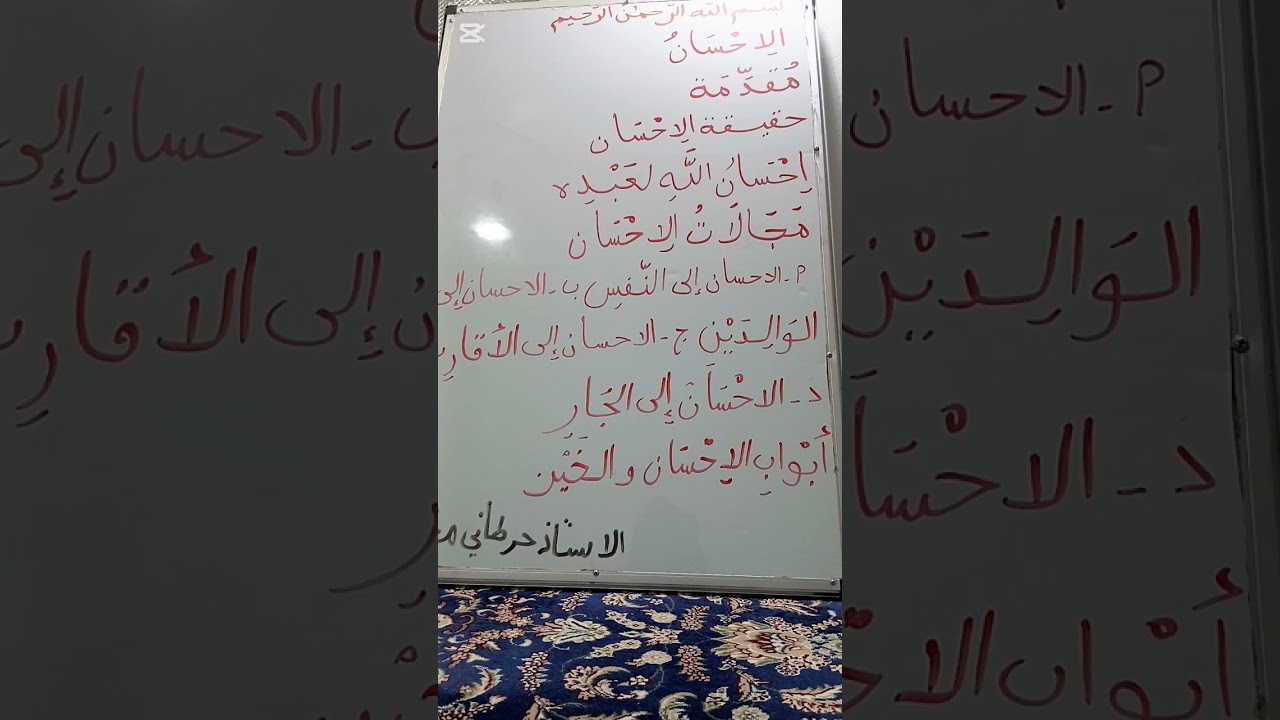 بسم الله الرحمن الرحيم
الِاحْسَانُ
مُقَدِّمَة
حقيقة الِاحْسَان
اِحْسَانُ اللَّهِ لعَبْدِه
مَجَالَاتُ الِاحْسَان
م - الاحسان إلى النّفسِ ب - الاحسان إلى
الوَالِدَيْنِ ج - الاحسان إلى الأقارِب
د - الاحْسَان إلى الجَارِ
أَبْوَابِ الإحْسَان والخَيْر
الاستاذ حرطاني